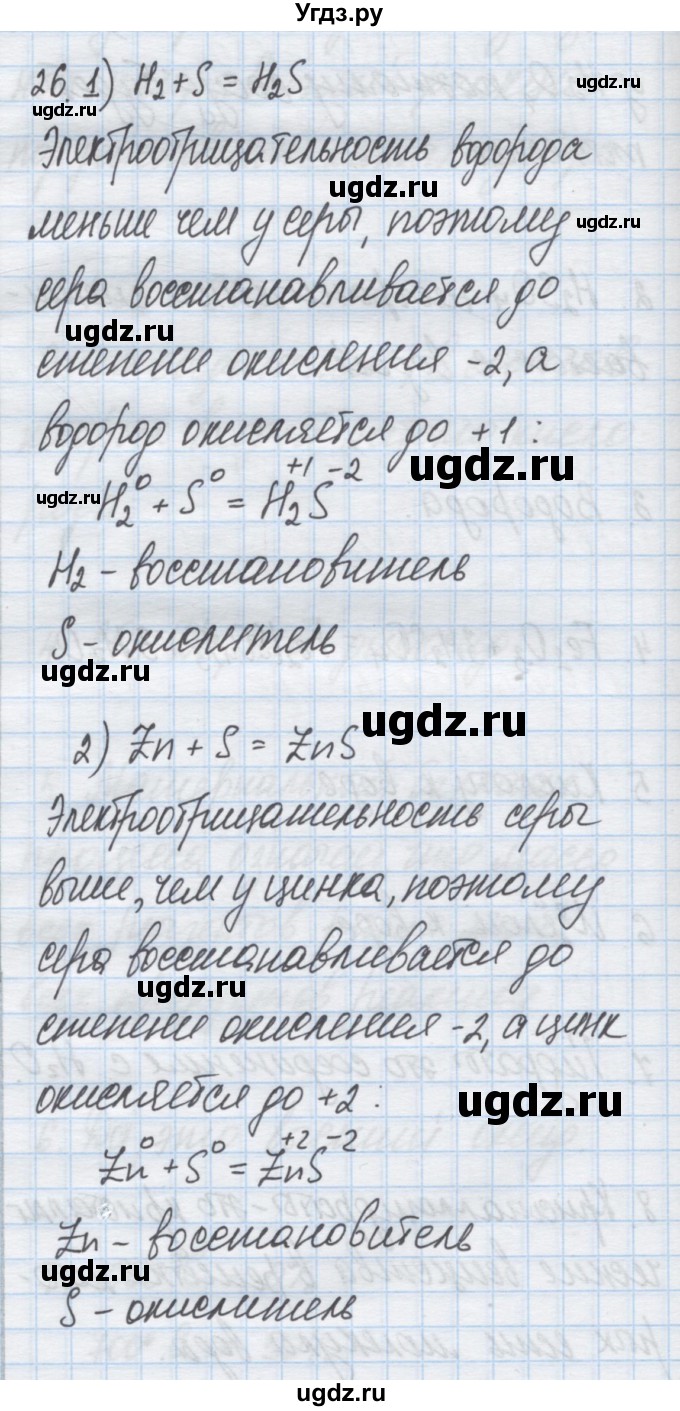 Угдз.ру
26 1) H₂ + S = H₂S
ugdz.ru
Электроотрицательность водорода
ugdz.ru
меньше чем у серы, поэтому
ugdz.ru
сера восстанавливается до
ugdz.ru
степени окисления -2, а
водород окисляется до +1 :
ugdz.ru
ugdz.ru
H₂⁰ + S⁰ = H₂⁺¹S⁻²
H₂ - восстановитель
S - окислитель
ugdz.ru
ugdz.ru
2) Zn + S = ZnS
Электроотрицательность серы
выше, чем у цинка, поэтому
сера восстанавливается до
ugdz.ru
степени окисления -2, а цинк
окисляется до +2 :
ugdz.ru
Zn⁰ + S⁰ = Zn⁺²S⁻²
Zn - восстановитель
ugdz.ru
S - окислитель
ugdz.ru